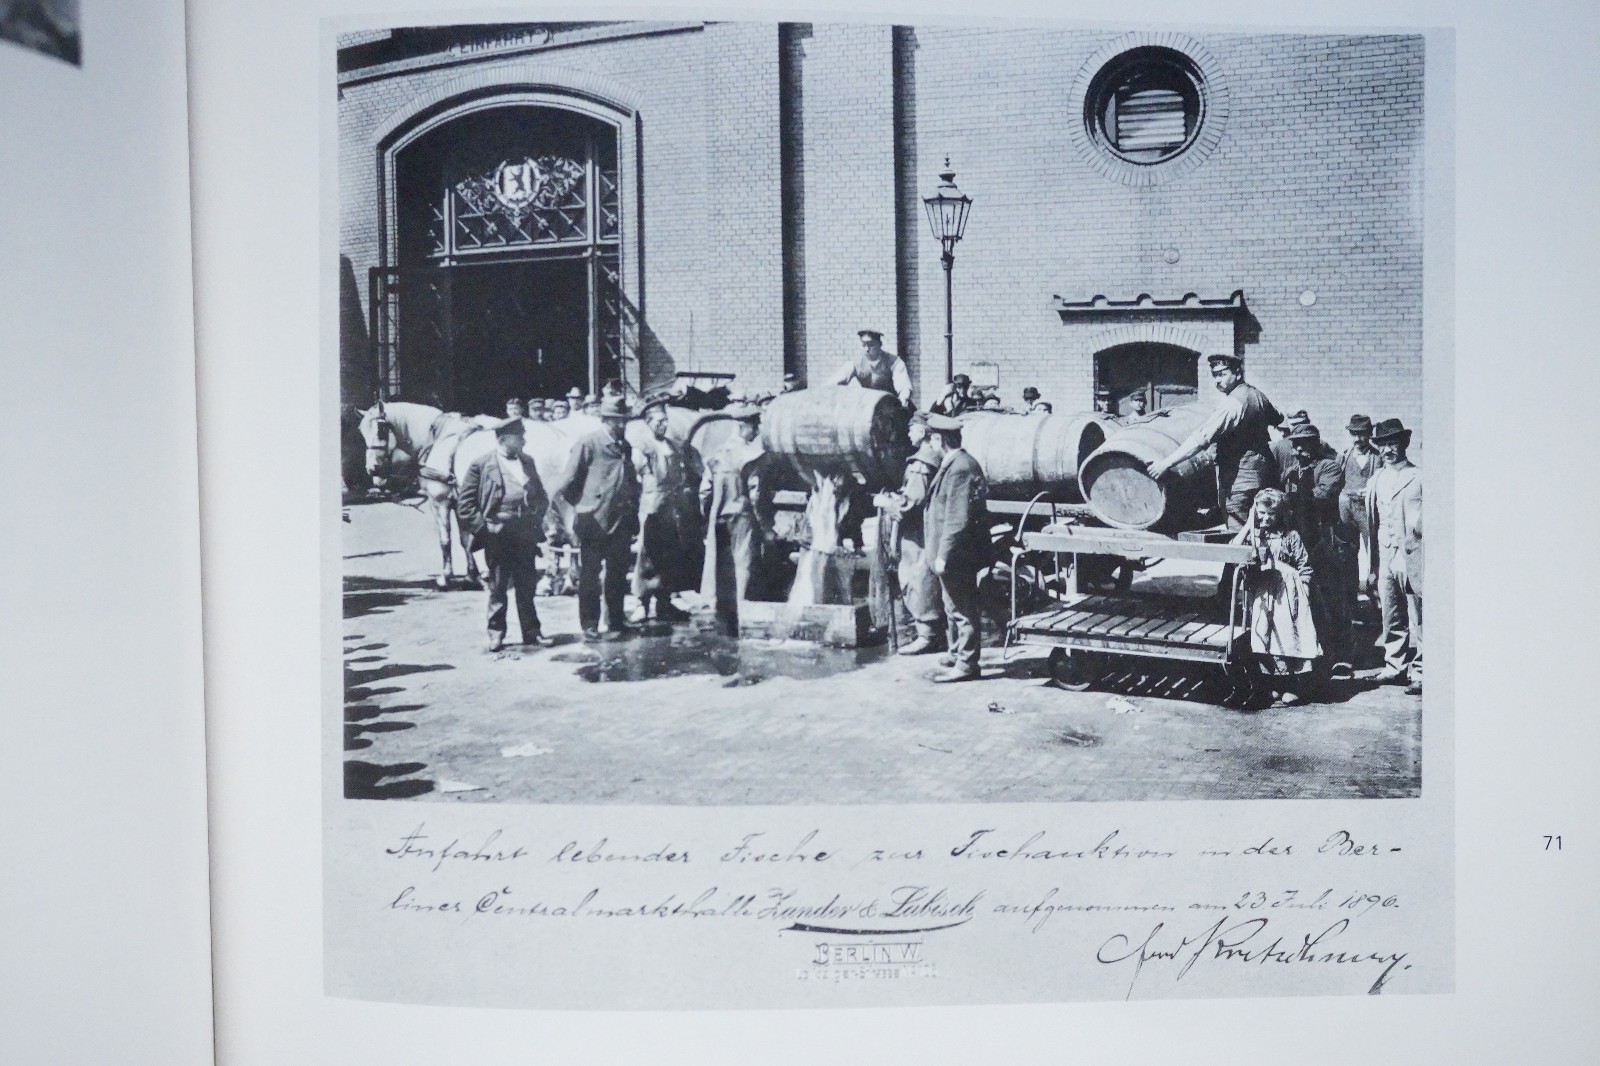 EINFAHRT A
Anfahrt lebender Fische zur Fischauktion in der Ber-
liner Centralmarkthalle Zander & Lübisch aufgenommen am 23 Juli 1896.
BERLIN W.
71